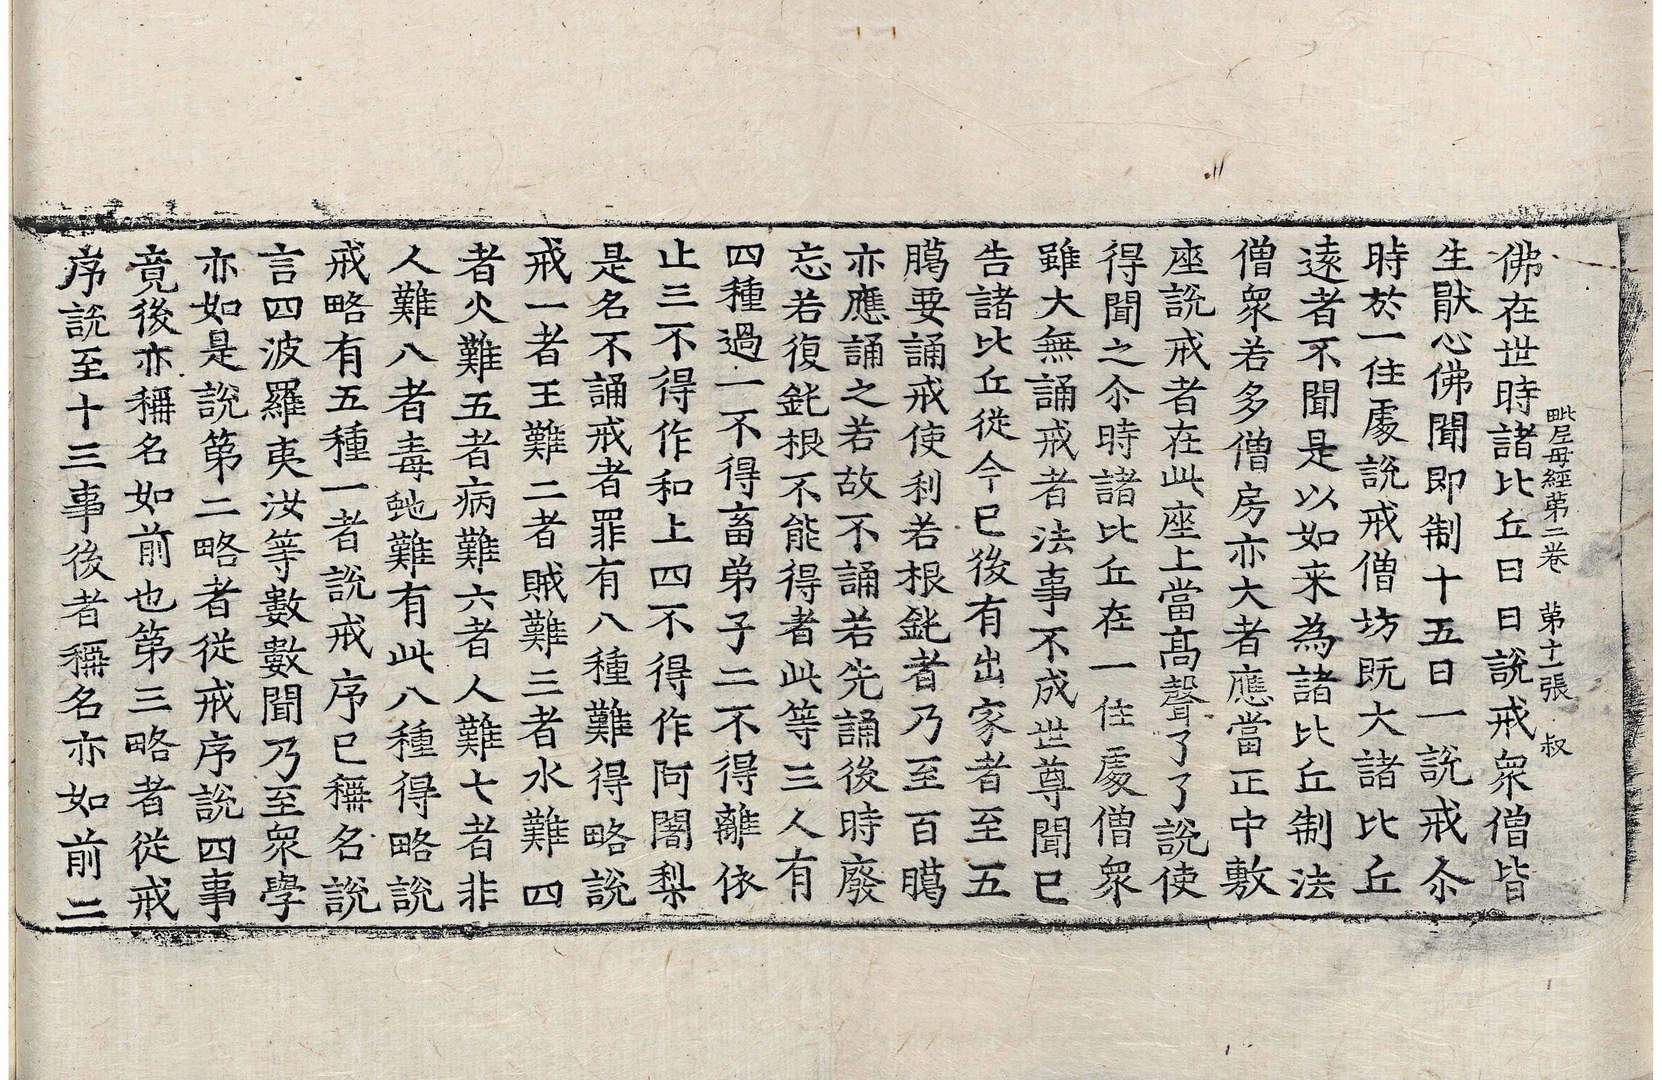 毗尼母經第二卷　第十一張　叔
佛在世時諸比丘日日說戒衆僧皆
生猒心佛聞即制十五日一說戒尒
時於一住處說戒僧坊既大諸比丘
遠者不聞是以如来為諸比丘制法
僧衆若多僧房亦大者應當正中敷
座說戒者在此座上當髙聲了了說使
得聞之尒時諸比丘在一住處僧衆
雖大無誦戒者法事不成世尊聞已
告諸比丘從今已後有出家者至五
臈要誦戒使利若根鈍者乃至百臈
亦應誦之若故不誦若先誦後時廢
忘若復鈍根不能得者此等三人有
四種過一不得畜弟子二不得離依
止三不得作和上四不得作阿闍梨
是名不誦戒者罪有八種難得略說
戒一者王難二者賊難三者水難四
者火難五者病難六者人難七者非
人難八者毒虵難有此八種得略說
戒略有五種一者說戒序已稱名說
言四波羅夷汝等數數聞乃至衆學
亦如是說第二略者從戒序說四事
竟後亦稱名如前也第三略者從戒
序說至十三事後者稱名亦如前二